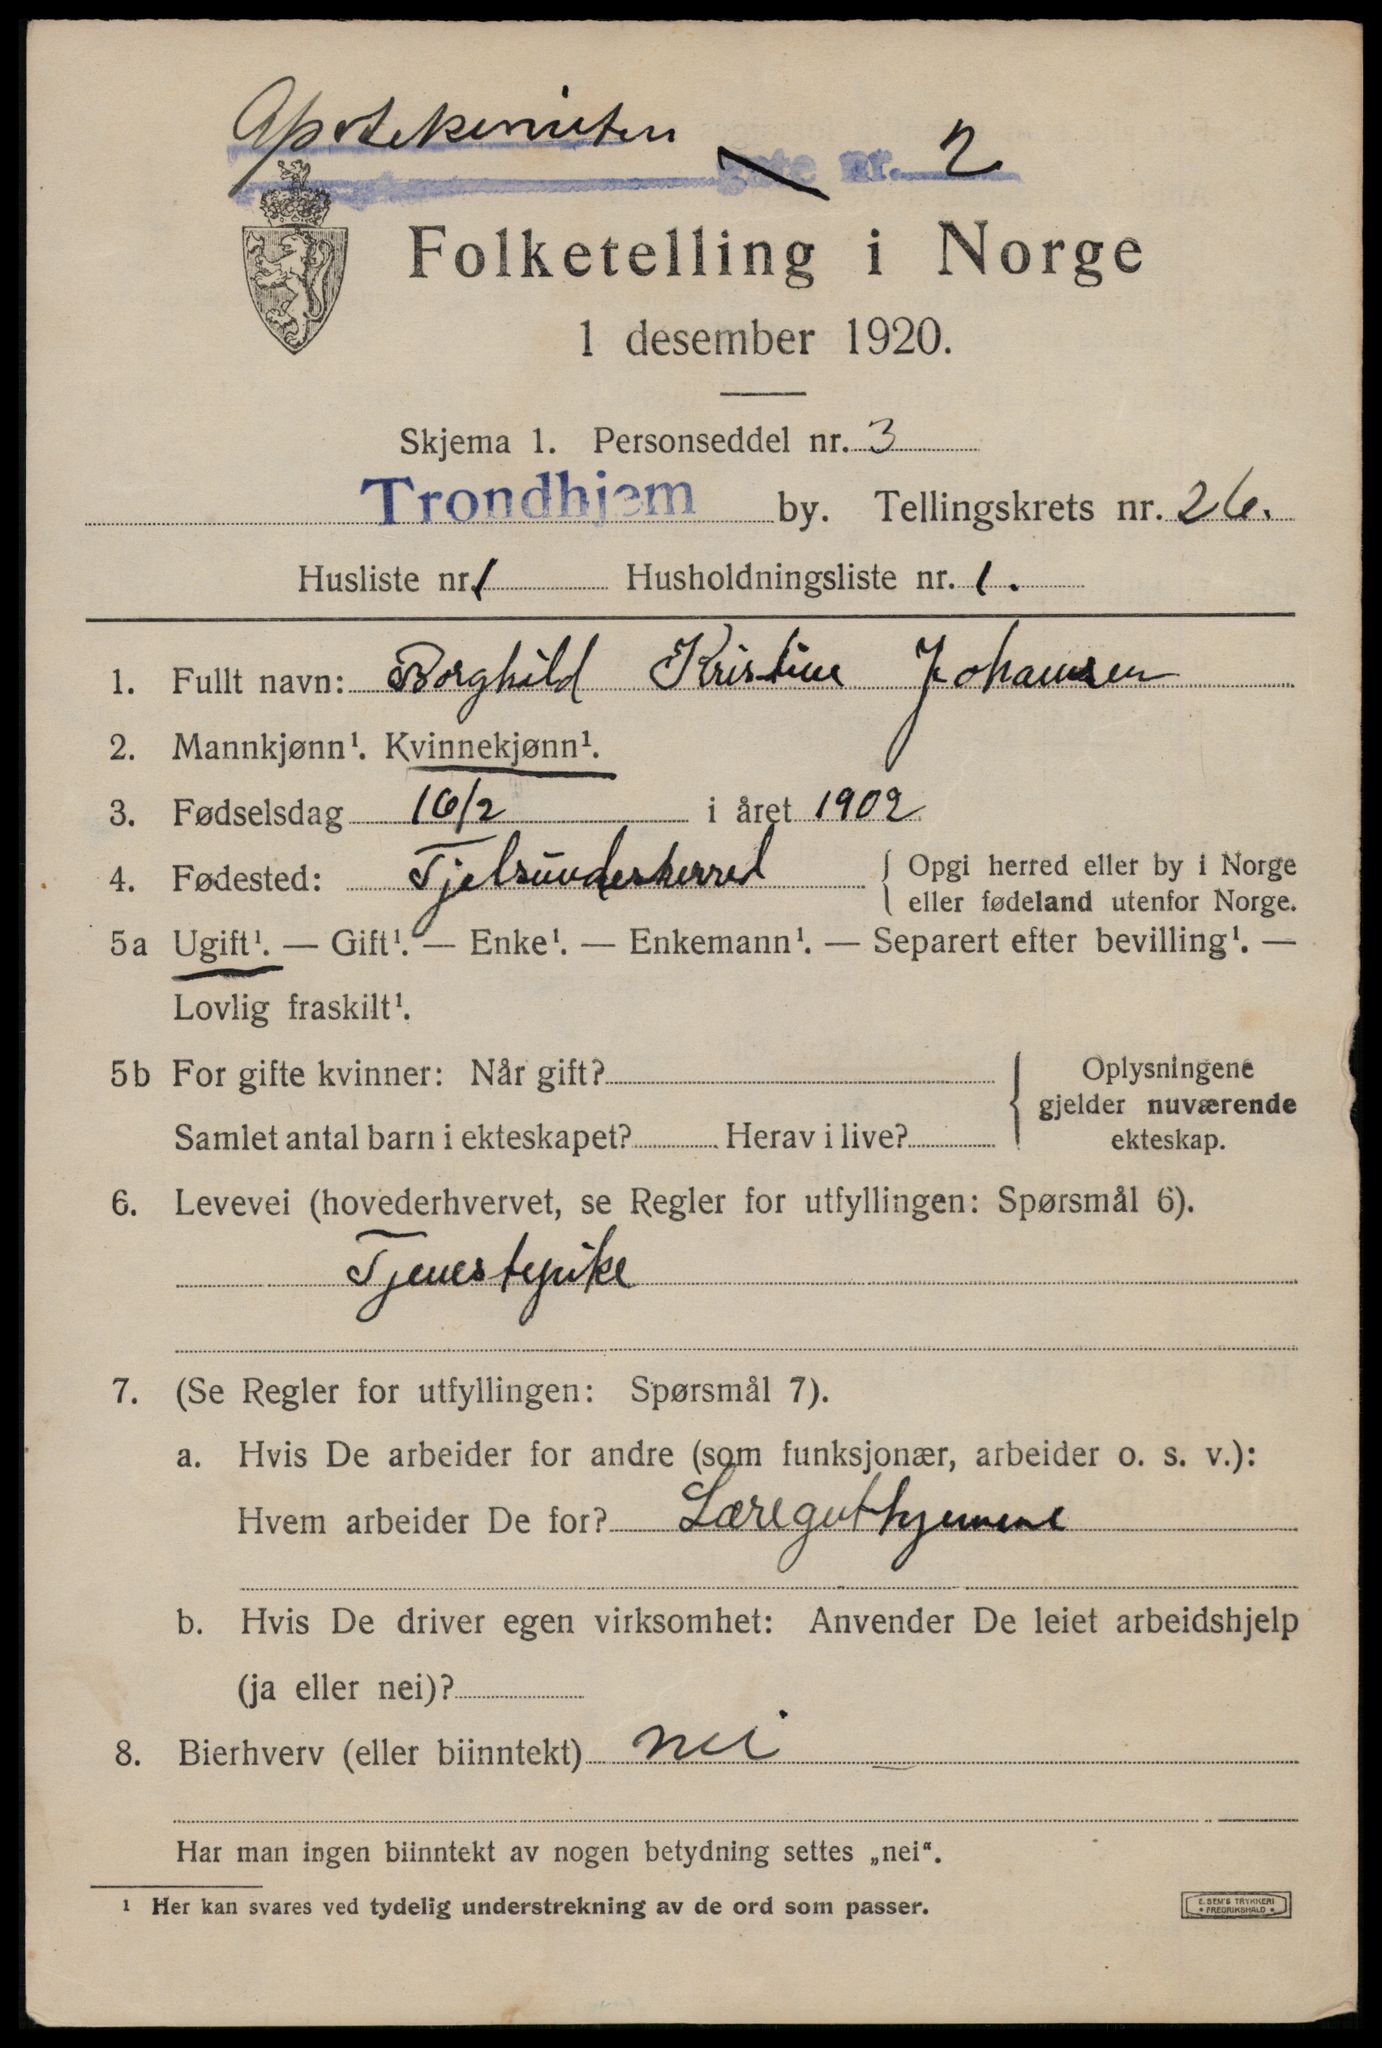 Apotekerveiten
gate nr. 2
Folketelling i Norge
1 desember 1920.
Skjema 1. Personseddel nr. 3
Trondhjem by. Tellingskrets nr. 26.
Husliste nr. 1 Husholdningsliste nr. 1.
1. Fullt navn: Borghild Kristine Johansen
2. Mannkjønn¹. Kvinnekjønn¹.
3. Fødselsdag 16/2 i året 1902
4. Fødested: Tjelsundesherred { Opgi herred eller by i Norge
eller fødeland utenfor Norge.
5a Ugift¹. — Gift¹. — Enke¹. — Enkemann¹. — Separert efter bevilling¹. —
Lovlig fraskilt¹.
5b For gifte kvinner: Når gift? Oplysningene
gjelder nuværende
Samlet antal barn i ekteskapet? Herav i live? ekteskap.
6. Levevei (hovederhvervet, se Regler for utfyllingen: Spørsmål 6).
Tjenestepike
7. (Se Regler for utfyllingen: Spørsmål 7).
a. Hvis De arbeider for andre (som funksjonær, arbeider o. s. v.):
Hvem arbeider De for? Læreguthjemmene
b. Hvis De driver egen virksomhet: Anvender De leiet arbeidshjelp
(ja eller nei)?
8. Bierhverv (eller biinntekt) nei
Har man ingen biinntekt av nogen betydning settes „nei“.
¹ Her kan svares ved tydelig understrekning av de ord som passer.
E. SEM'S TRYKKERI
FREDRIKSHALD